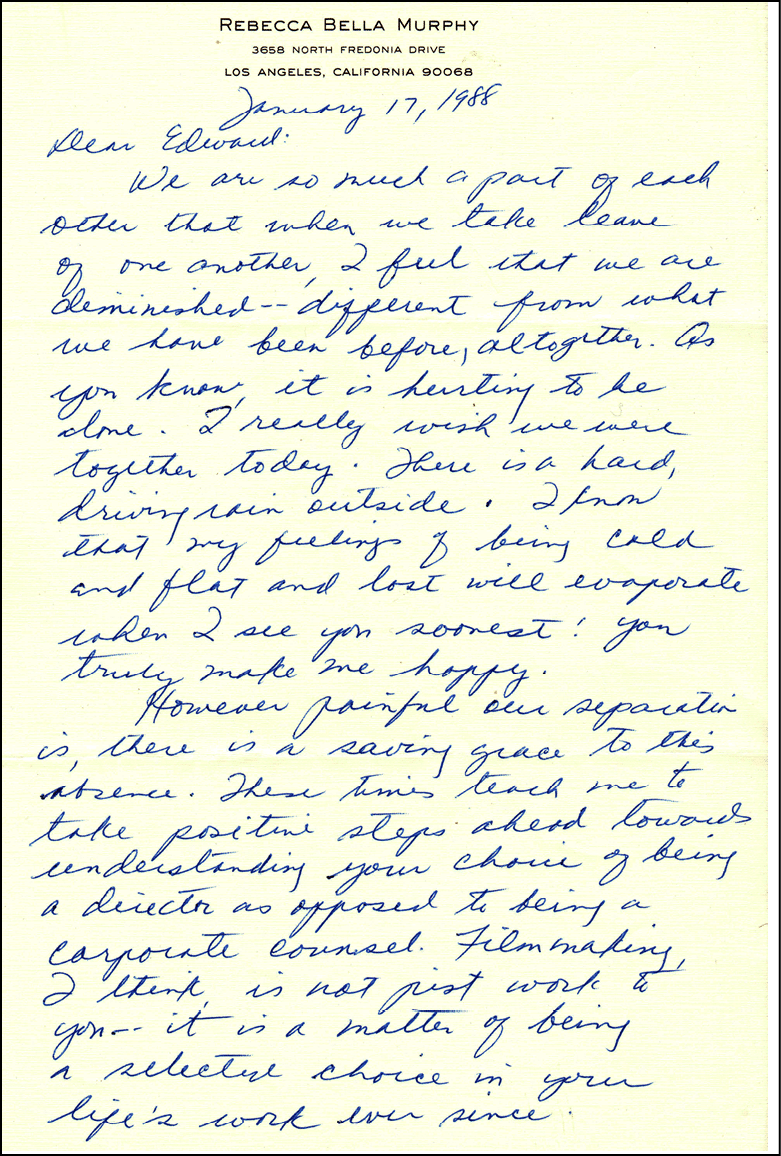 REBECCA BELLA MURPHY
3658 NORTH FREDONIA DRIVE
LOS ANGELES, CALIFORNIA 90068
January 17, 1988
Dear Edward:
We are so much a part of each
other that when we take leave
of one another, I feel that we are
deminished -- different from what
we have been before, altogether. As
you know, it is hurting to be
alone. I really wish we were
together today. There is a hard,
driving rain outside. I know
that my feelings of being cold
and flat and lost will evaporate
when I see you soonest! You
truly make me happy.
However painful our separation
is, there is a saving grace to this
absence. These times teach me to
take positive steps ahead towards
understanding your choice of being
a director as opposed to being a
corporate counsel. Filmmaking,
I think, is not just work to
you -- it is a matter of being
a selected choice in your
life's work ever since.